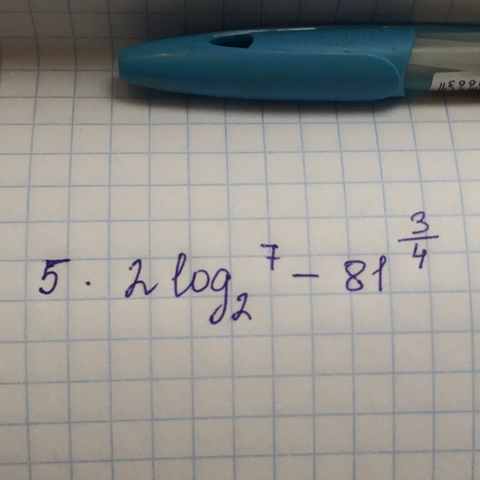 5 · 2 log₂ ⁷ – 81^(3/4)